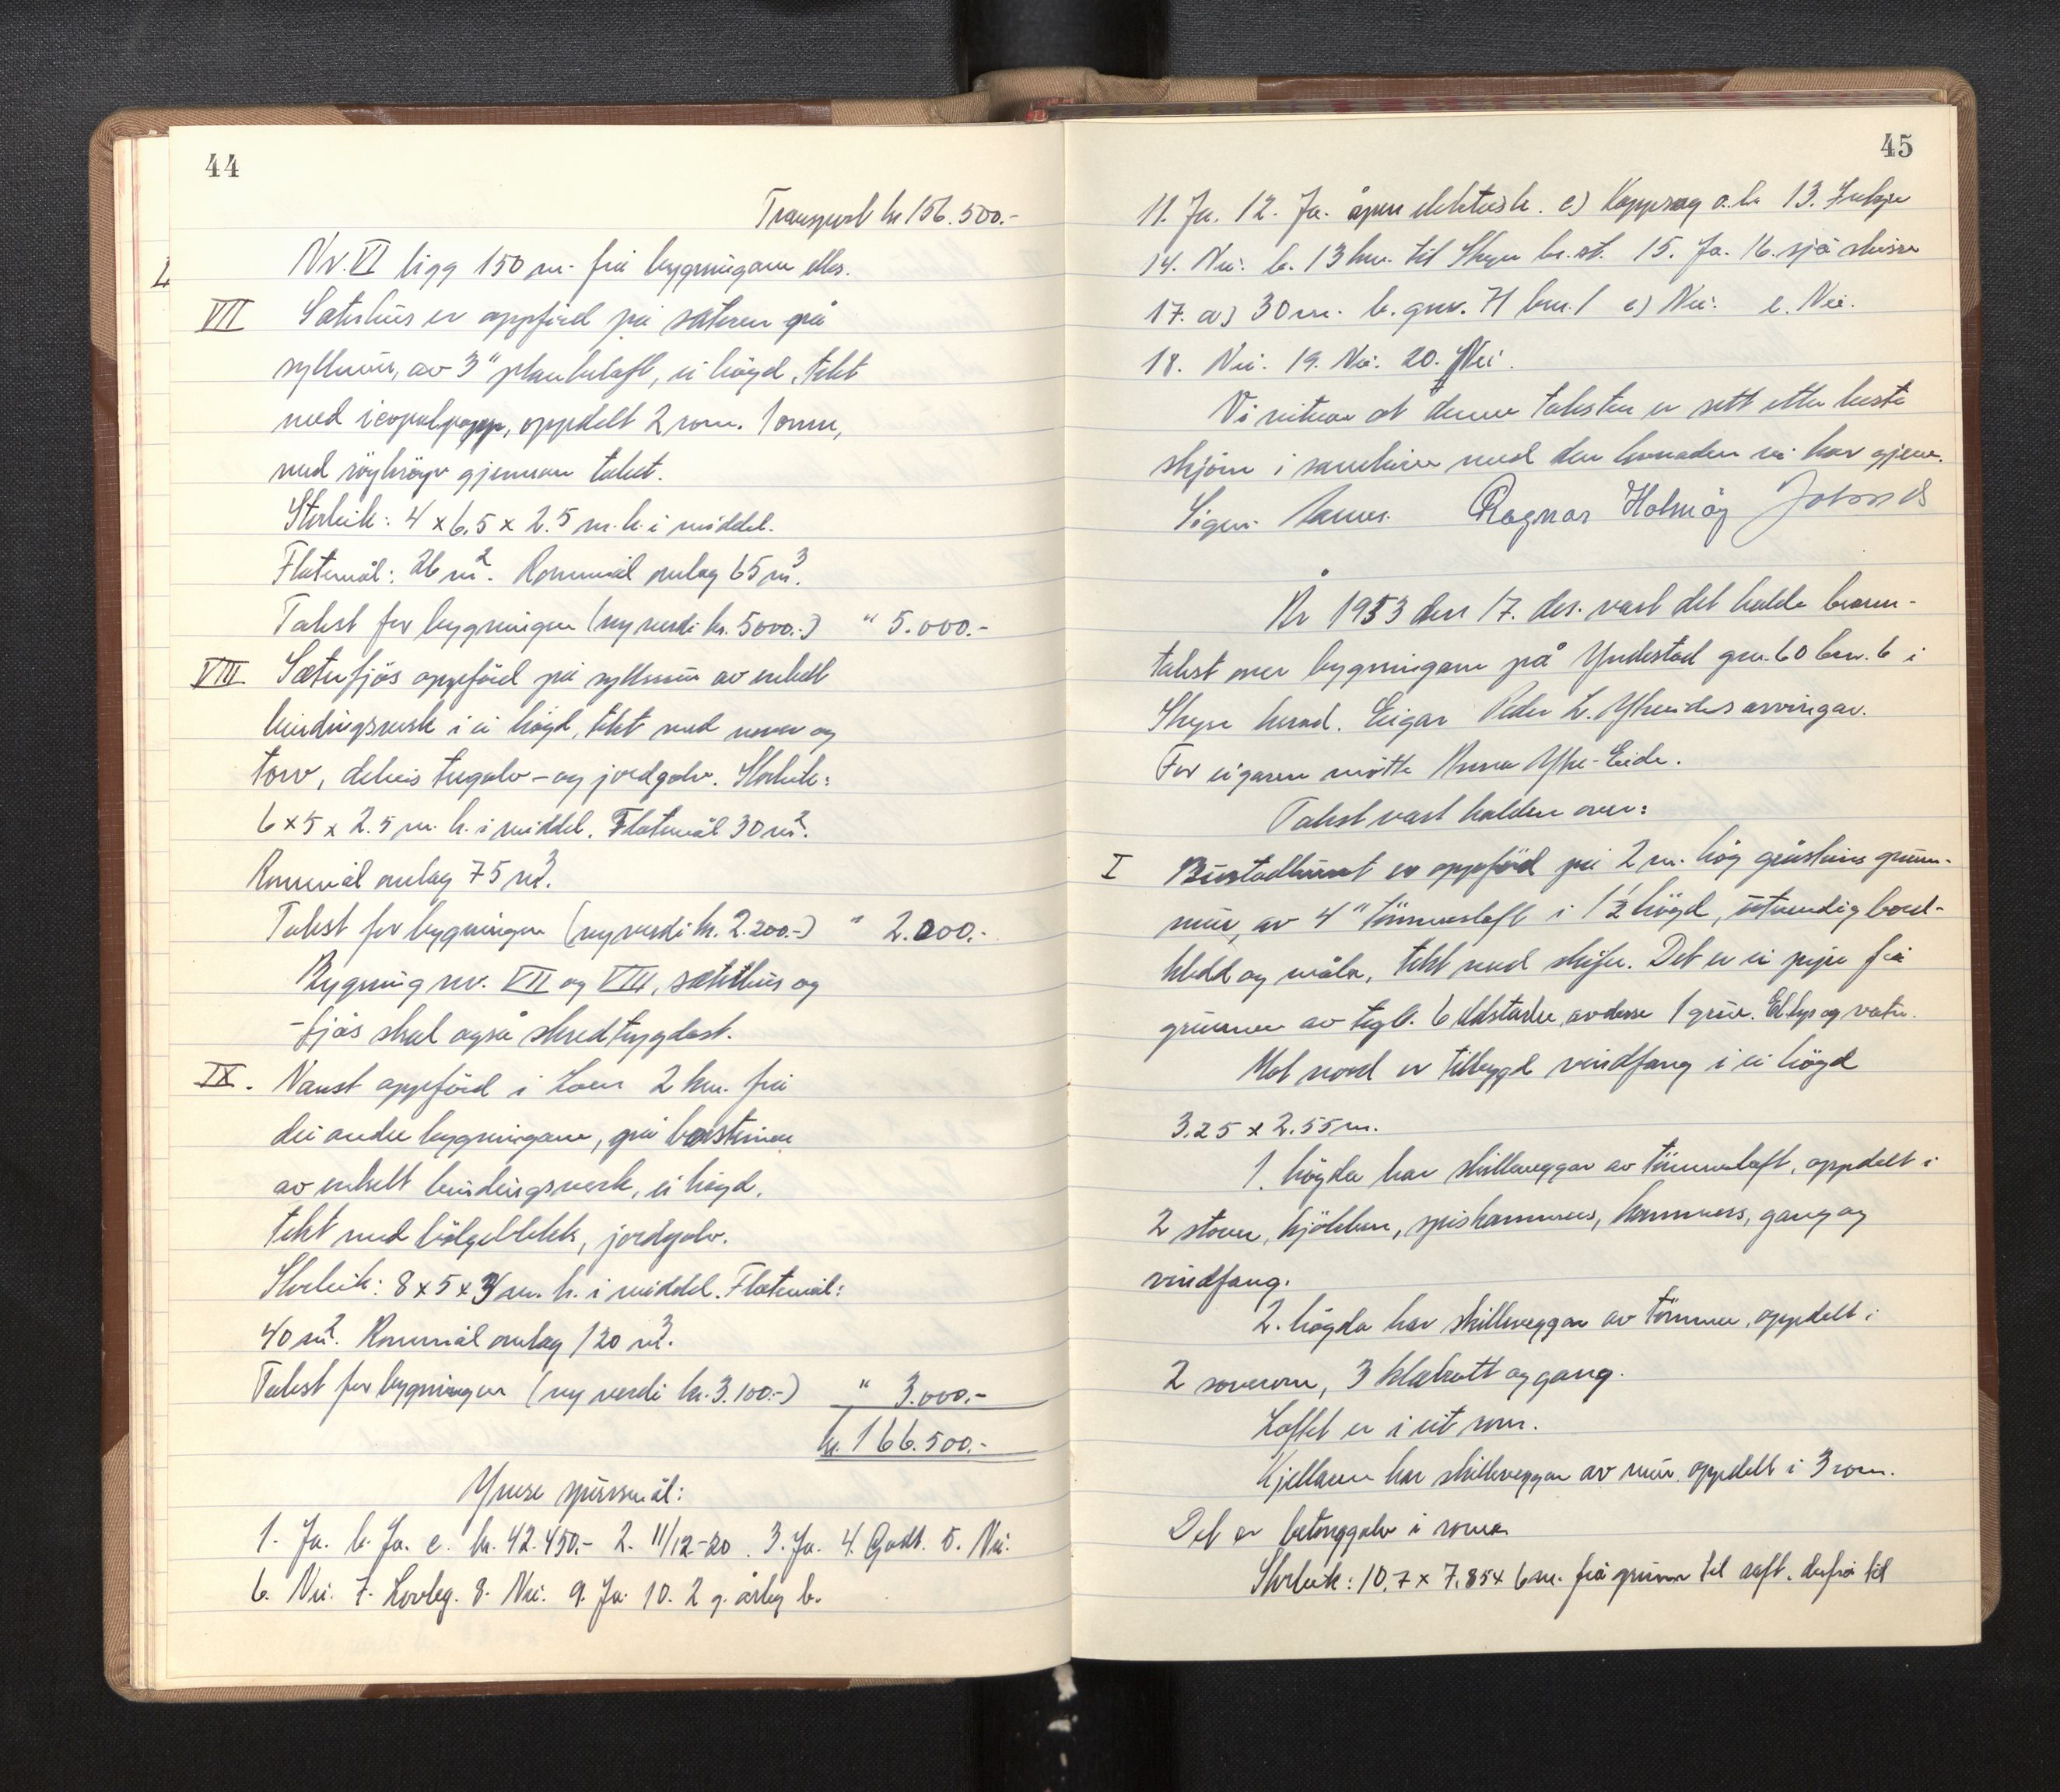 44
Transport kr 156.500.-
Nr. VI ligg 150 m. frå bygningane elles.
VII Sæterhus er oppförd på sæteren på
syllmur, av 3" plankelaft, ei högd, tekt
med icopalpapp, oppdelt 2 rom. 1 omn,
med röykröyr gjennom taket.
Storleik: 4 x 6,5 x 2.5 m. h. i middel.
Flatemål: 26 m². Rommål omlag 65 m³.
Takst for bygningen (ny verdi kr. 5000.-) " 5.000.-
VIII Sæterfjös oppförd på syllmur av enkelt
bindingsverk i ei högd, tekt med never og
torv, delvis tregolv- og jordgolv. Storleik:
6 x 5 x 2.5 m. h. i middel. Flatemål 30 m².
Rommål omlag 75 m³.
Takst for bygningen (ny verdi kr. 2.200.-) " 2.000.-
Bygning nr. VII og VIII, sæterhus og
-fjös skal også skredtrygdast.
IX. Naust oppförd i Loen 2 km. frå
dei andre bygningane, på
av enkelt bindingsverk, ei högd,
tekt med bölgeblekk, jordgolv.
Storleik: 8 x 5 x 3 m. h. i middel. Flatemål:
40 m². Rommål omlag 120 m³.
Takst for bygningen (ny verdi kr. 3.100.-) " 3.000.-
kr. 166.500.-
Ymse spursmål:
1. Ja. b. Ja. c. kr. 42.450.- 2. 11/12-20. 3. Ja. 4. Godt. 5. Nei.
6. Nei. 7. Lovleg. 8. Nei. 9. Ja. 10. 2 g. årleg b.
45
11. Ja. 12. Ja. åpen elektrisk. c) a. b. 13.
14. Nei. b. 13 km. til br. st. 15. Ja. 16. sjå skisse
17. a) 30 m. b. gnr. 71 bnr. 1 c) Nei. e. Nei.
18. Nei. 19. Nei. 20. Nei.
Vi vitnar at denne taksten er sett etter beste
skjönn i samhöve med den kunnaden vi har gjeve.
Ragnar Holmöy
År 1953 den 17. des. vart det halde brann-
takst over bygningane på Yndestad gnr. 60 bnr. 6 i
herad. Eigar Peder L. arvingar.
For eigaren mötte Anna Eide.
Takst vart halden over:
I Bustadhuset er oppförd på 2 m. hög gråsteins grunn-
mur, av 4" tömmerlaft i 1½ högd, utvendig bord-
kledd og måla, tekt med skifer. Det er ei pipe frå
grunnen av tegl. 6 eldstader, av desse 1 grue. El. lys og vatn.
Mot nord er tilbygd vindfang i ei högd
3.25 x 2.55 m.
1. högda har skilleveggar av tömmerlaft, oppdelt i
2 stover, kjökken, spiskammers, kammers, gang og
vindfang.
2. högda har skilleveggar av tömmer, oppdelt i
2 soverom, 3 klekott og gang.
Loftet er i eit rom.
Kjellaren har skilleveggar av mur, oppdelt i 3 rom.
Det er betonggolv i
Storleik: 10,7 x 7,85 x 6 m. frå grunn til raft, derfrå til